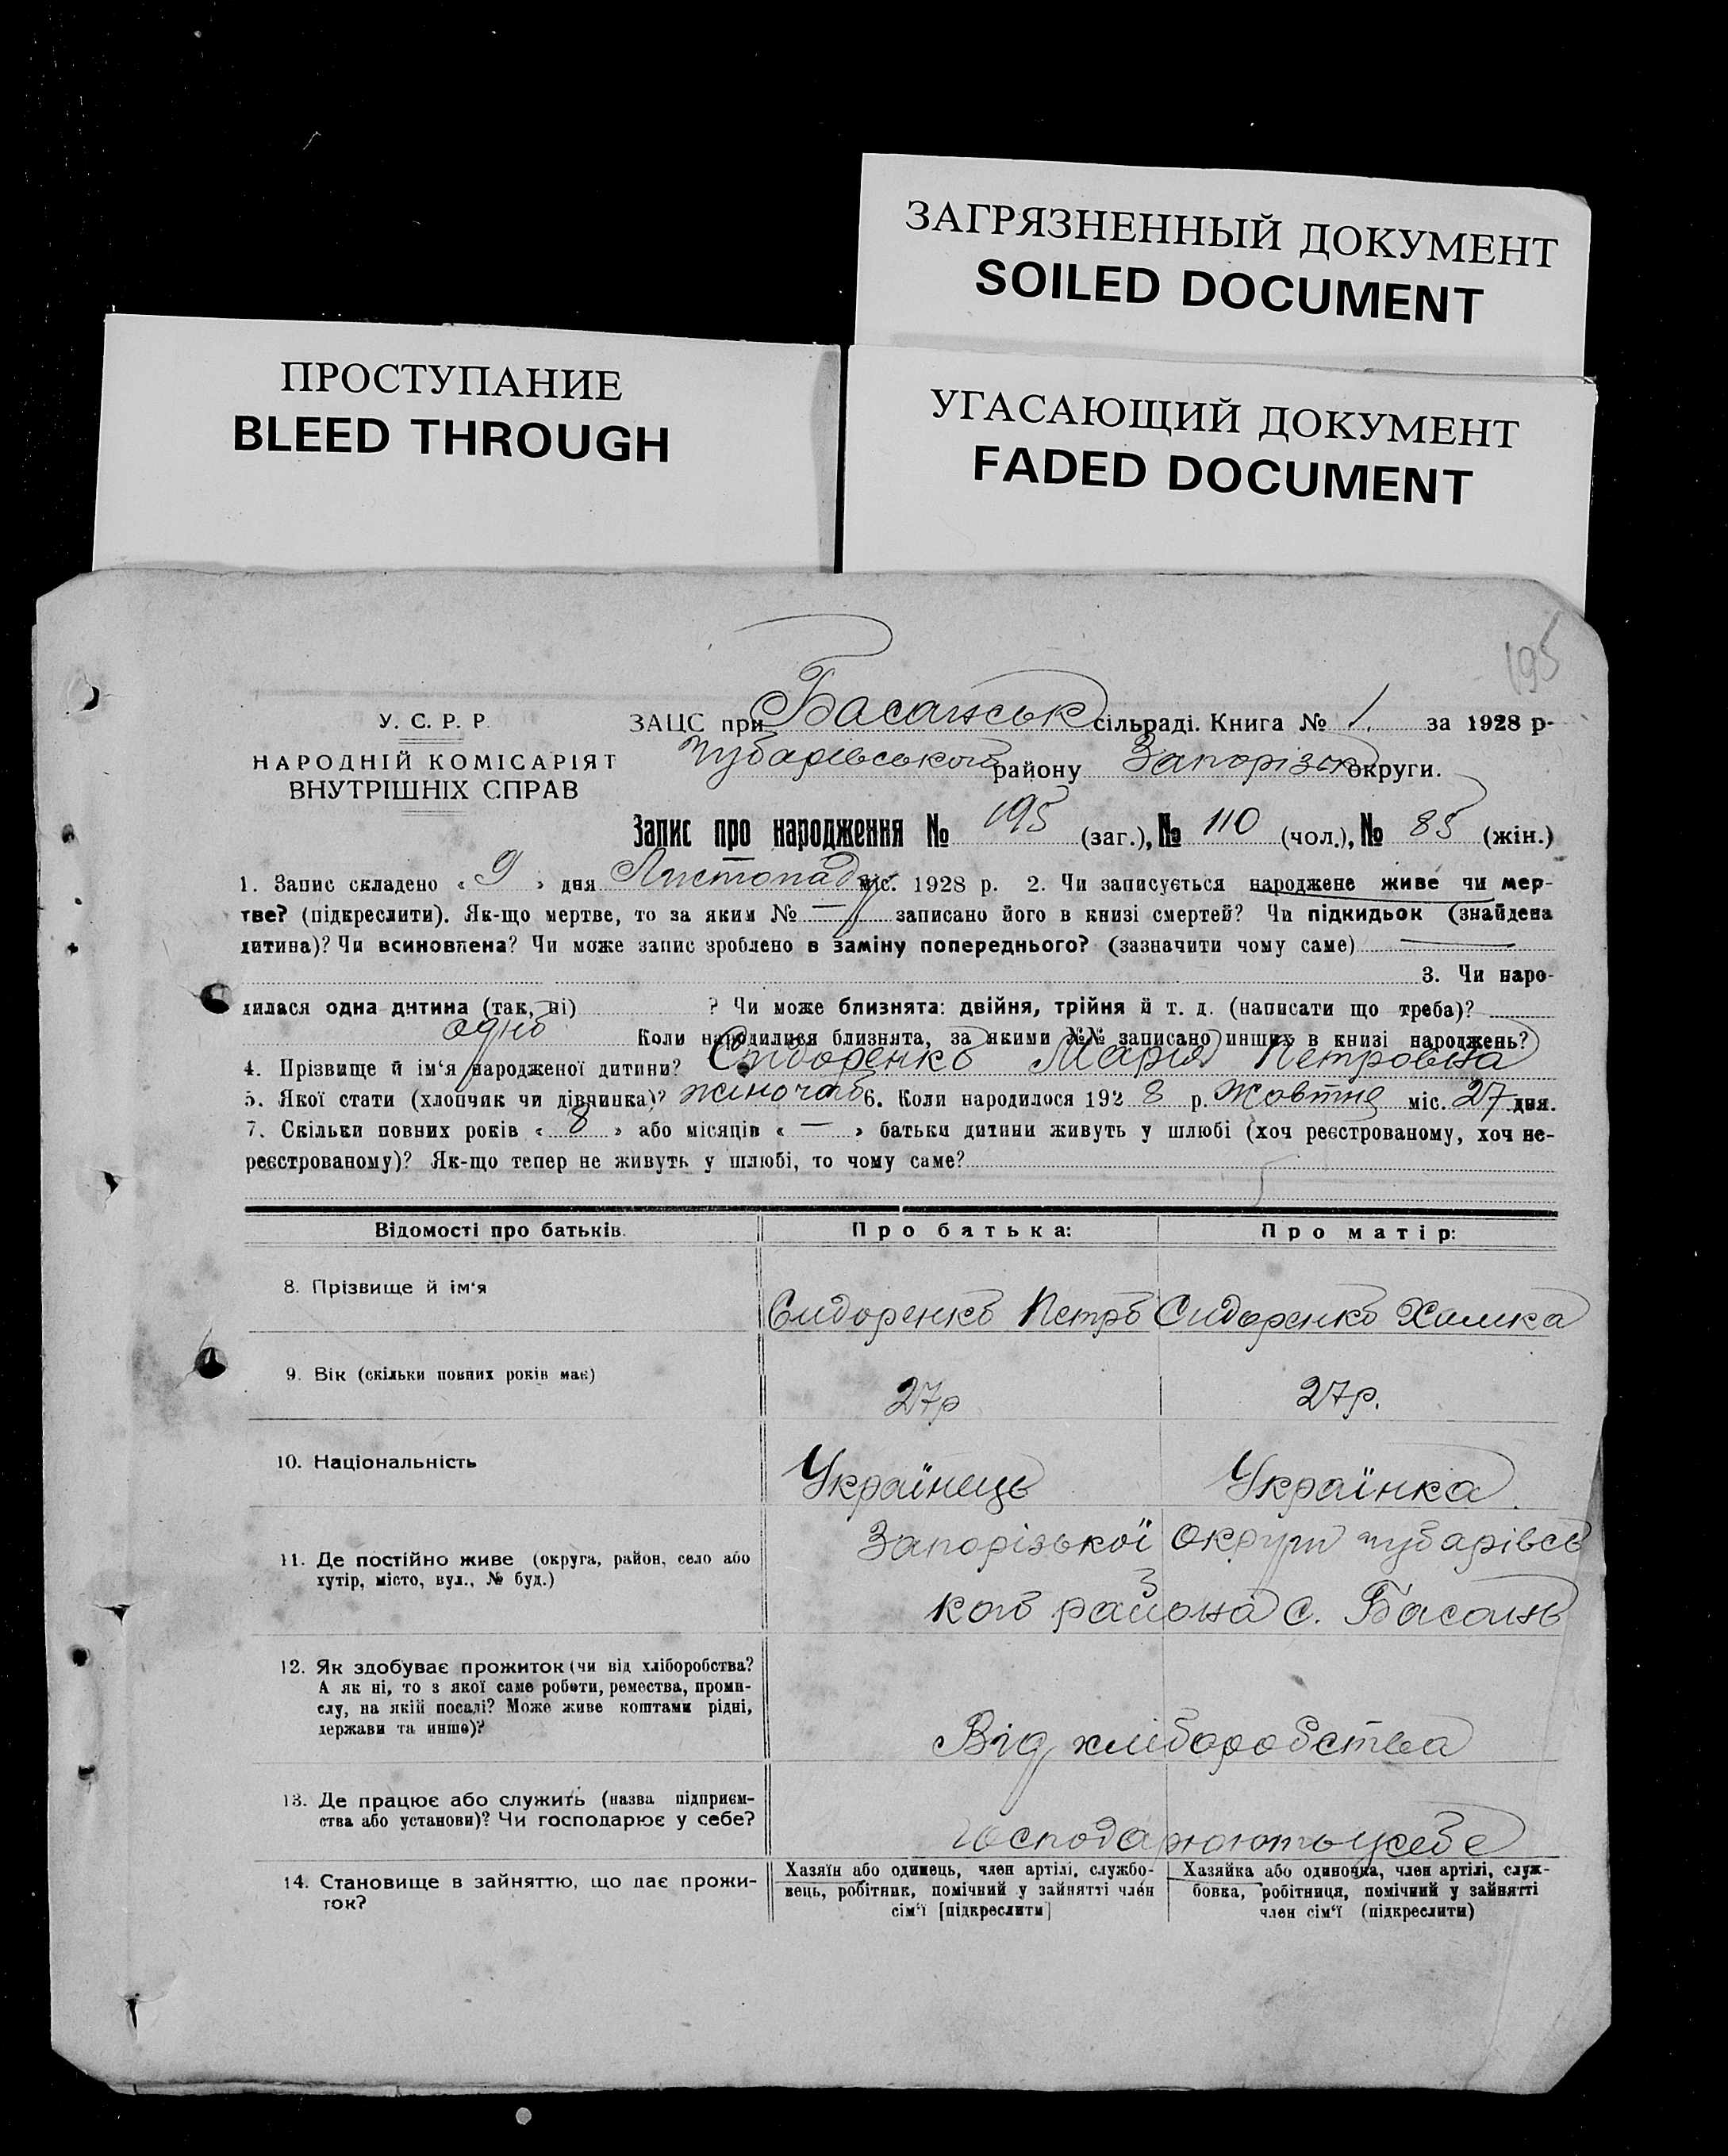 ЗАГРЯЗНЕННЫЙ ДОКУМЕНТ
SOILED DOCUMENT
ПРОСТУПАНИЕ
BLEED THROUGH
УГАСАЮЩИЙ ДОКУМЕНТ
FADED DOCUMENT
195
У. С. Р. Р.
НАРОДНІЙ КОМІСАРІЯТ
ВНУТРІШНІХ СПРАВ
ЗАЦС при Басанськ сільраді. Книга № 1. за 1928 р-
Чубарівського району Запорізьк округи.
Запис про народження № 195 (заг.), № 110 (чол.), № 85 (жін.)
1. Запис складено « 9 » дня Листопаду міс. 1928 р. 2. Чи записується народжене живе чи мер-
тве? (підкреслити). Як-що мертве, то за яким № — записано його в книзі смертей? Чи підкидьок (знайдена
дитина)? Чи всиновлена? Чи може запис зроблено в заміну попереднього? (зазначити чому саме) —
3. Чи наро-
дилася одна дитина (так, ні) ? Чи може близнята: двійня, трійня й т. д. (написати що треба)?
одно Коли народилися близнята, за якими №№ записано инших в книзі народжень?
4. Прізвище й ім‘я народженої дитини? Сидоренко Марія Петровна
5. Якої стати (хлопчик чи дівчинка)? жіночаб 6. Коли народилося 192 8 р. Жовтня міс. 27 дня.
7. Скільки повних років « 8 » або місяців « — » батьки дитини живуть у шлюбі (хоч реєстрованому, хоч не-
реєстрованому)? Як-що тепер не живуть у шлюбі, то чому саме?
Відомості про батьків. Про батька: Про матір:
8. Прізвище й ім‘я
Сидоренко Петро Сидоренко Химка
9. Вік (скільки повних років має)
27р 27р.
10. Національність
Українець Українка
11. Де постійно живе (округа, район, село або
хутір, місто, вул., № буд.)
Запорізької округи Чубарівсь
кого района с. Басань
12. Як здобуває прожиток (чи від хліборобства?
А як ні, то з якої саме роботи, ремества, проми-
слу, на якій посаді? Може живе коштами рідні,
держави та инше)?
Від хліборобства
13. Де працює або служить (назва підприєм-
ства або установи)? Чи господарює у себе?
господарюють у себе
14. Становище в зайняттю, що дає прожи-
ток?
Хазяїн або одинець, член артілі, службо-
вець, робітник, помічний у зайнятті член
сім‘ї [підкреслити]
Хазяйка або одиночка, член артілі, служ-
бовка, робітниця, помічний у зайнятті
член сім‘ї (підкреслити)